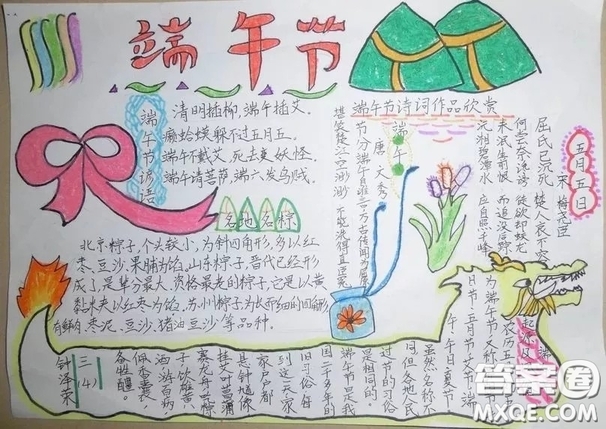 端午节
端午节谚语
清明插柳，端午插艾。
癞蛤蟆躲不过五月五。
端午不戴艾，死去变妖怪。
端午请菩萨，端六发乌贼。
名地名粽
北京粽子，个头较小，为斜四角形，多以红
枣、豆沙、果脯为馅，山东粽子，晋代已经形
成了，是单分最大、资格最老的粽子，它是以黄
黏米夹以红枣为馅，苏州粽子为长而细的四角形
有鲜肉、枣泥、豆沙、猪油豆沙等品种。
端午节诗词作品欣赏
端午
唐 文秀
节分端午自谁言，万古传闻为屈原
堪笑楚江空渺渺，不能洗得直臣冤
五月五日
宋 梅尧臣
屈氏已沉死
楚人衰不容
何尝奈谗谤
徒欲却蛟龙
未泯生前恨
而追没后踪
沅湘碧潭水
应自照千峰
农历五
为端午节，又称
日节、五月节、艾节、端
午、午日、夏节
虽然名称不
同，但各地人民
过节的习俗
是相同的。
端午节是我
国二千多年的
旧习俗，每
到这一天，家
家户户都
悬钟馗像
挂艾叶菖蒲
赛龙舟、吃粽
子、饮雄黄
酒、游百病
佩香囊，
备牲醴。
三（4）
钟泽荣
答案圈
MXQE.COM